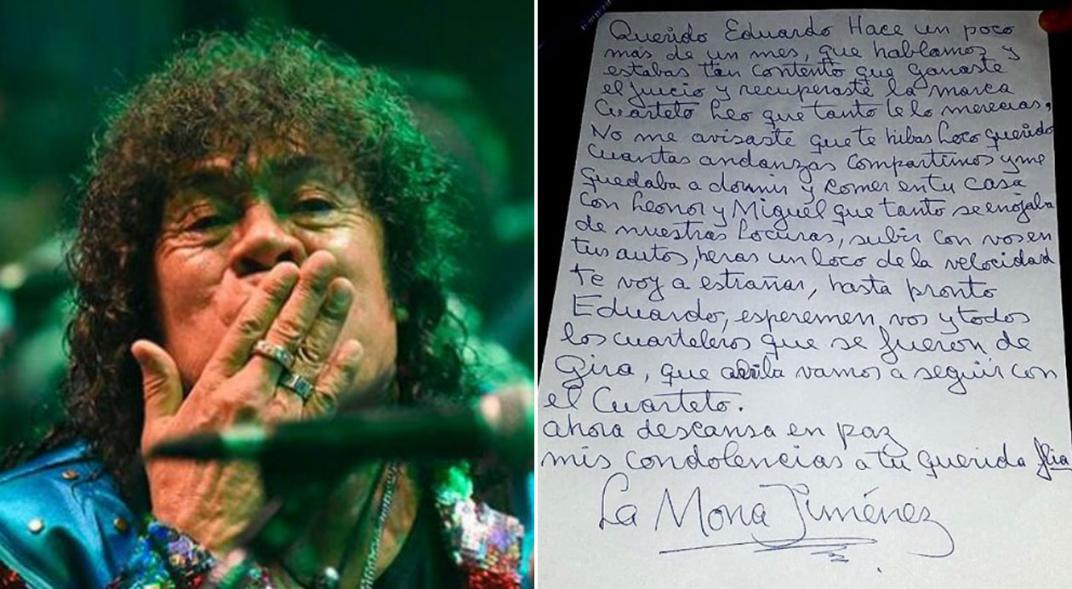 Querido Eduardo Hace un poco
más de un mes, que hablamos y
estabas tan contento que ganaste
el juicio y recuperaste la marca
Cuarteto Leo que tanto te lo merecias,
No me avisaste que te hibas Loco querido
cuantas andanzas compartimos y me
quedaba a dormir y comer en tu casa
con Leonor y Miguel que tanto se enojaba
de nuestras locuras, subir con vos en
tus autos, heras un loco de la velocidad
te voy a estrañar, hasta pronto
Eduardo, esperemen vos y todos
los cuarteteros que se fueron de
Gira, que vamos a seguir con
el Cuarteto.
ahora descansa en paz
mis condolencias a tu querida flia
La Mona Jiménez